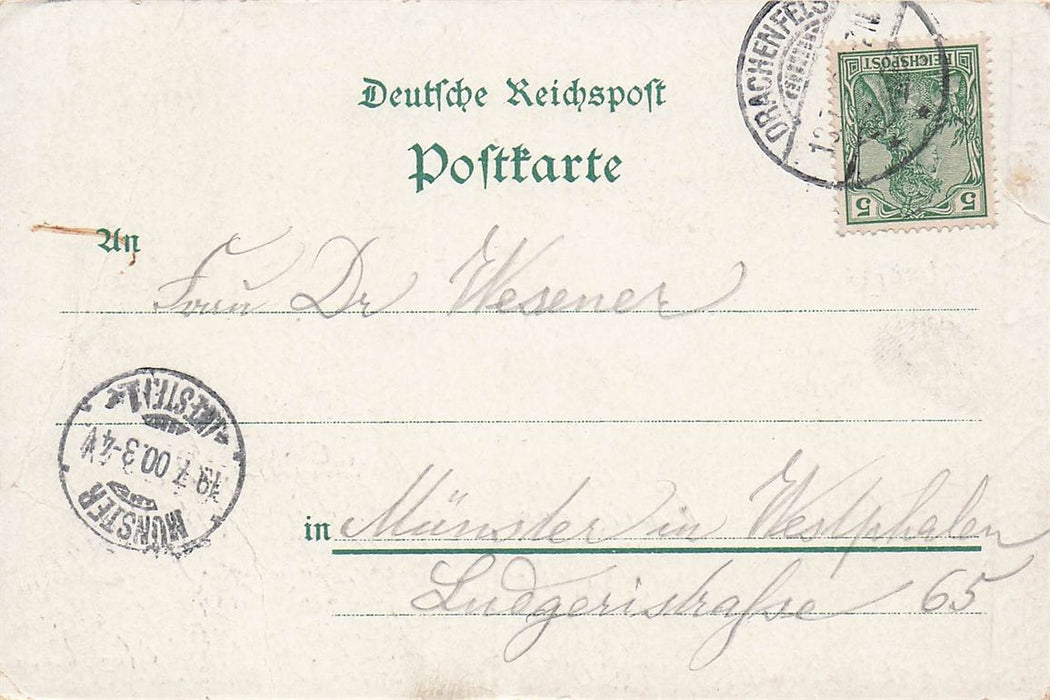 DRACHENFELS
REICHSPOST
5 5
Deutsche Reichspost
Postkarte
An
Frau Dr Wesener
MÜNSTER
19.7.00.3-4V.
in Münster in Westphalen
Ludgeristraße 65